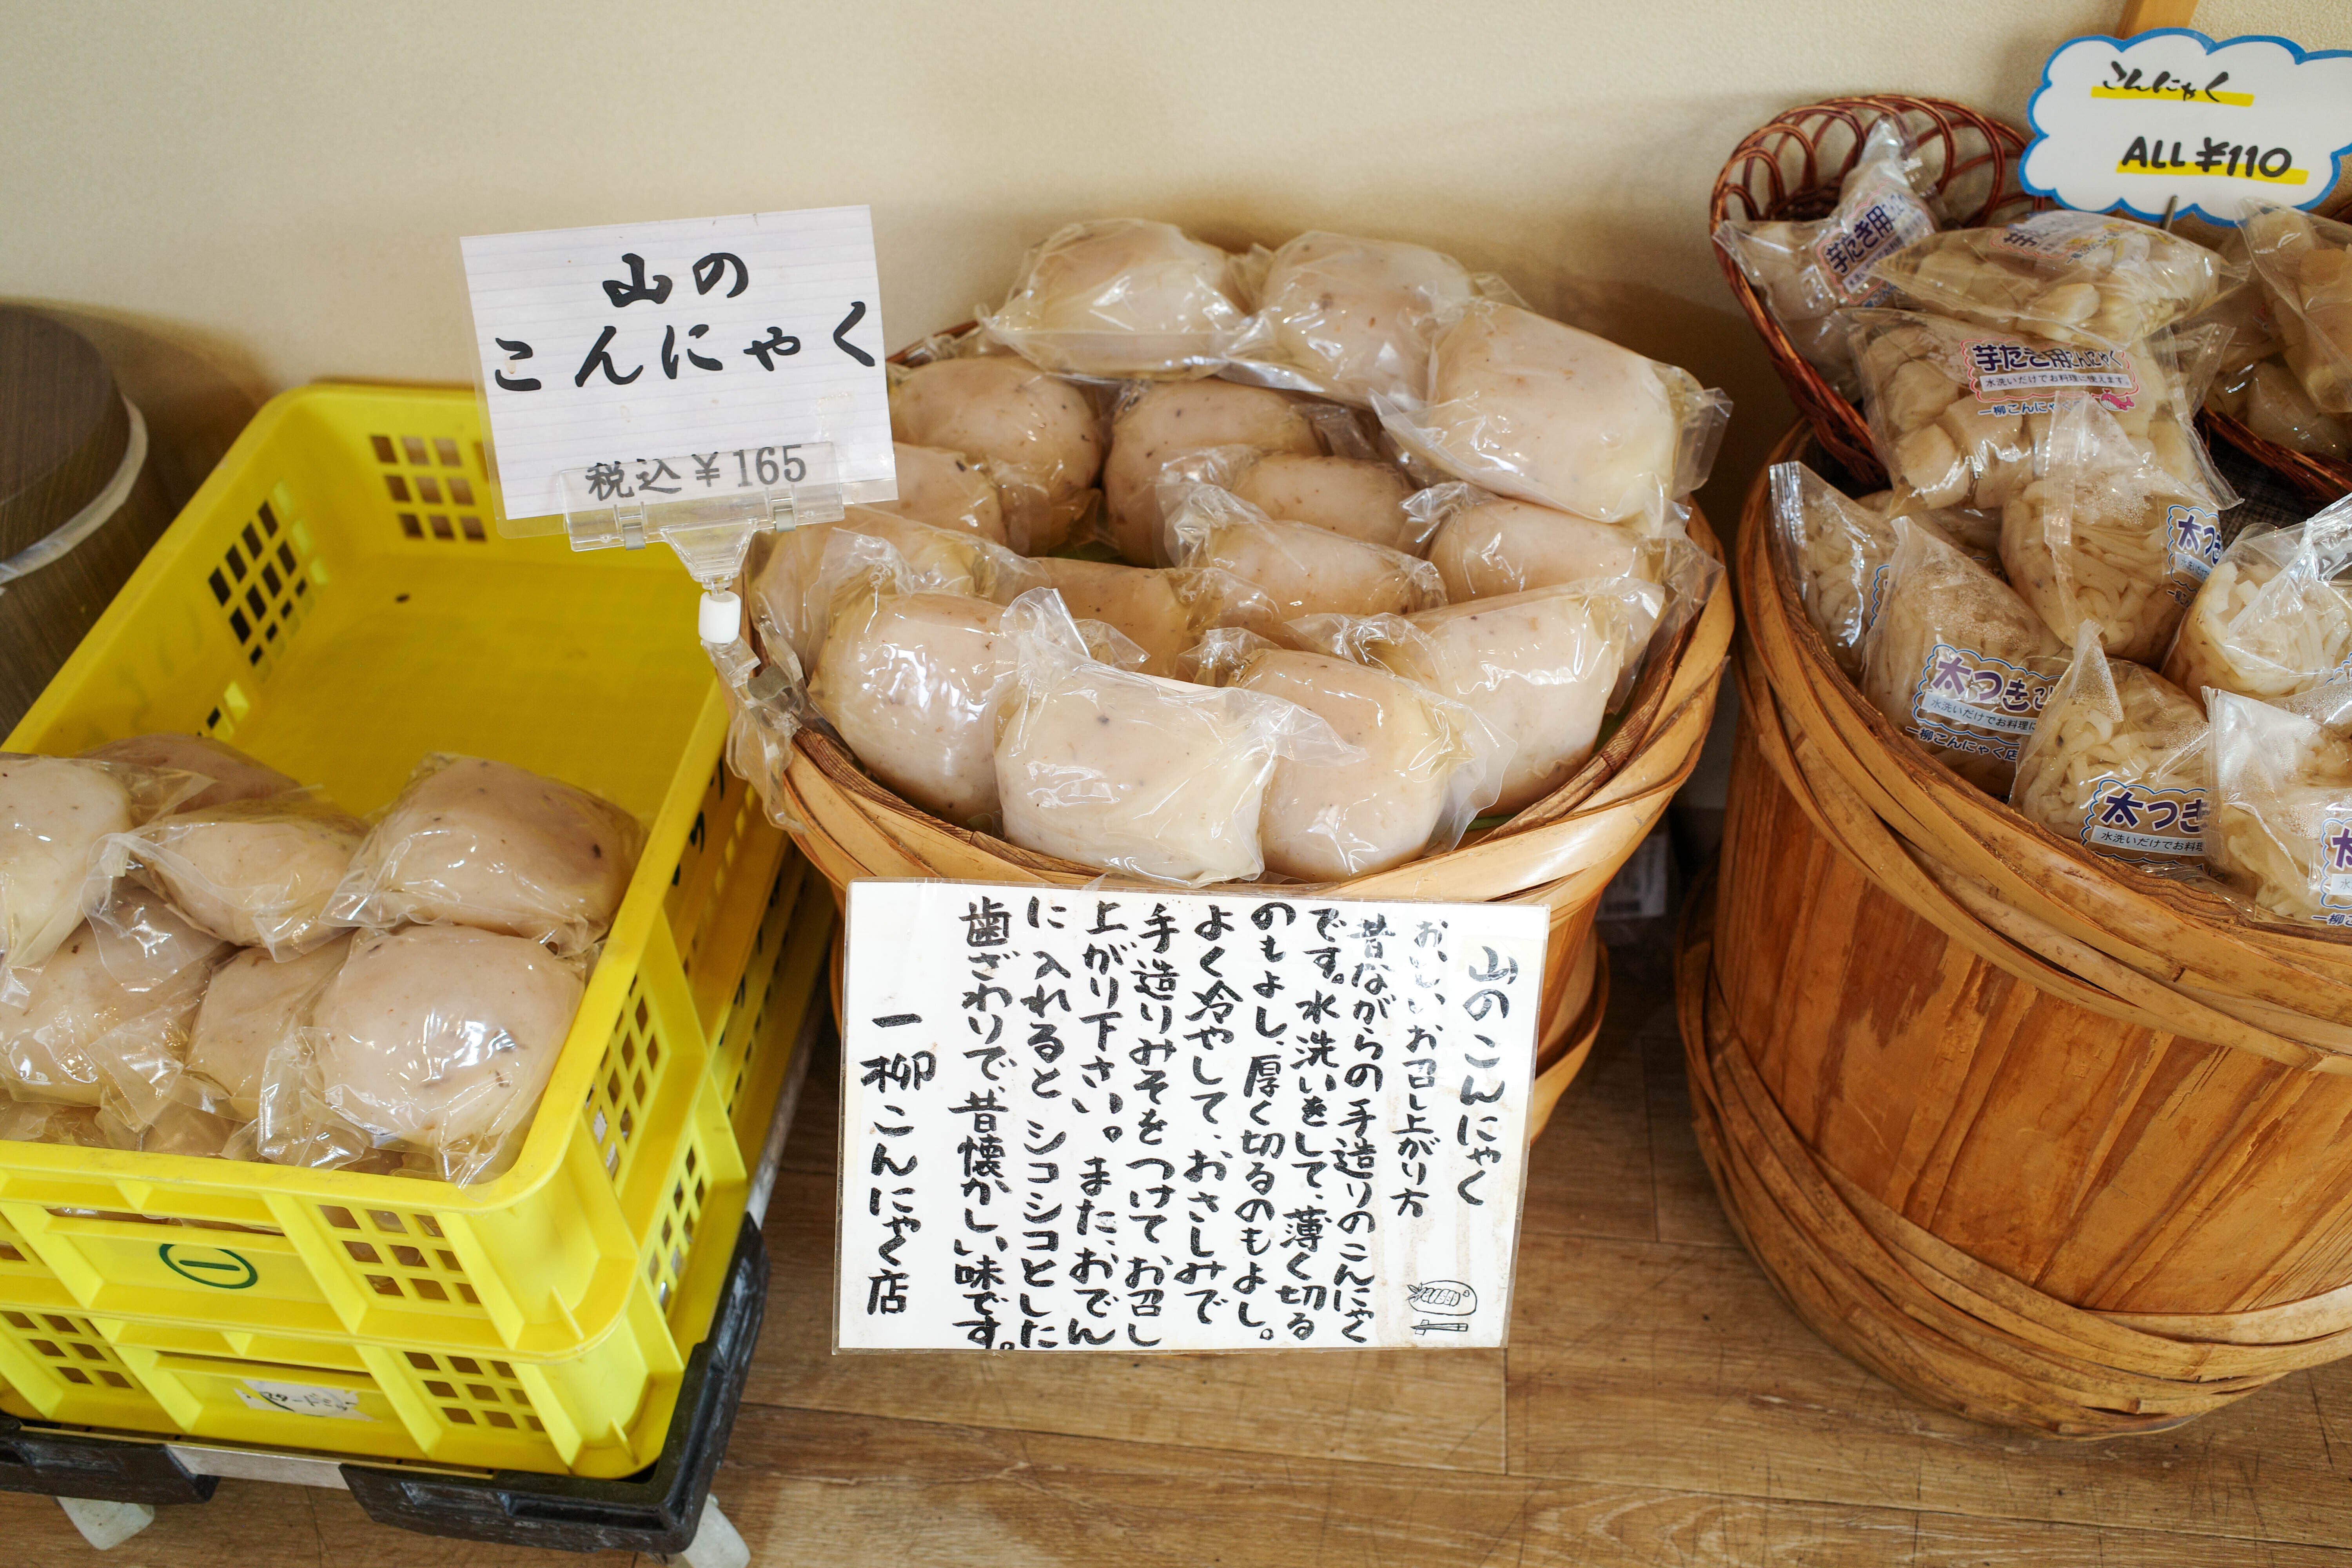 山の
こんにゃく
税込￥165
山のこんにゃく
おいしいお召し上がり方
昔ながらの手造りのこんにゃく
です。水洗いをして、薄く切る
のもよし、厚く切るのもよし。
よく冷やして、おさしみで
手造りみそをつけてお召し
上がり下さい。また、おでん
に入れると シコシコとした
歯ざわりで、昔懐かしい味です。
一柳こんにゃく店
こんにゃく
ALL ￥110
芋たき用
芋たき用こんにゃく
水洗いだけでお料理に使えます。
一柳こんにゃく
太つ
太つきこ
水洗いだけでお料理に
一柳こんにゃく店
太つき
水洗いだけでお料理
①